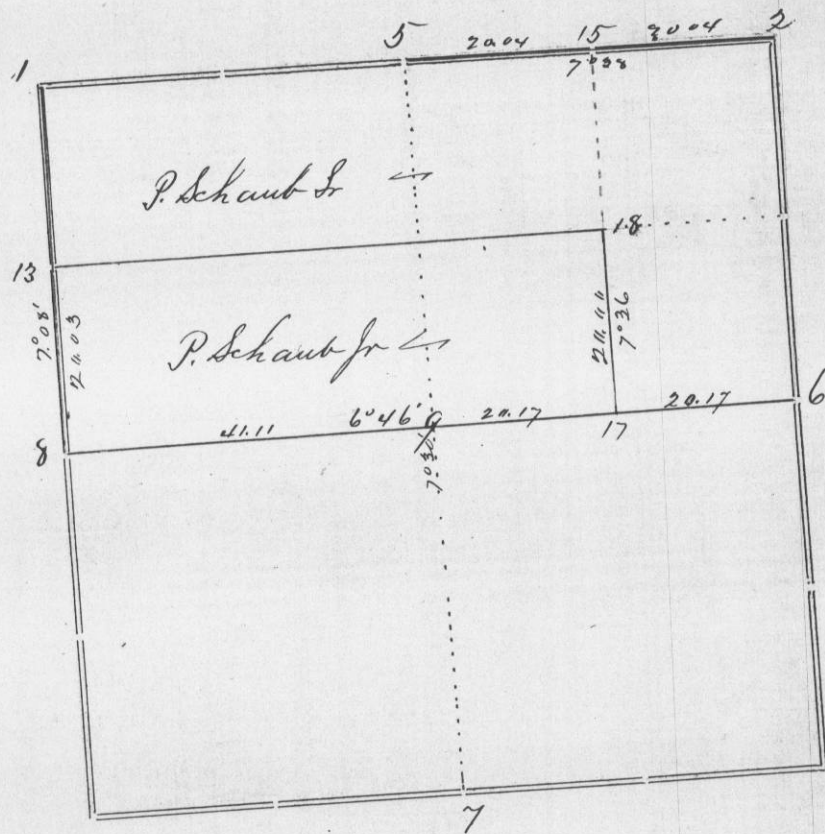 1 5 20.04 15 20.04 2
7°38
P. Schaub Sr
13 18
7°08'
20.03
P. Schaub Jr
20.00
7°36
6
8 41.11 6°46' 9 20.17 17 20.17
7